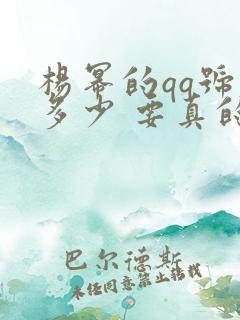 楊冪的qq號
多少 要真的
巴尔德斯
未经同意禁止转载